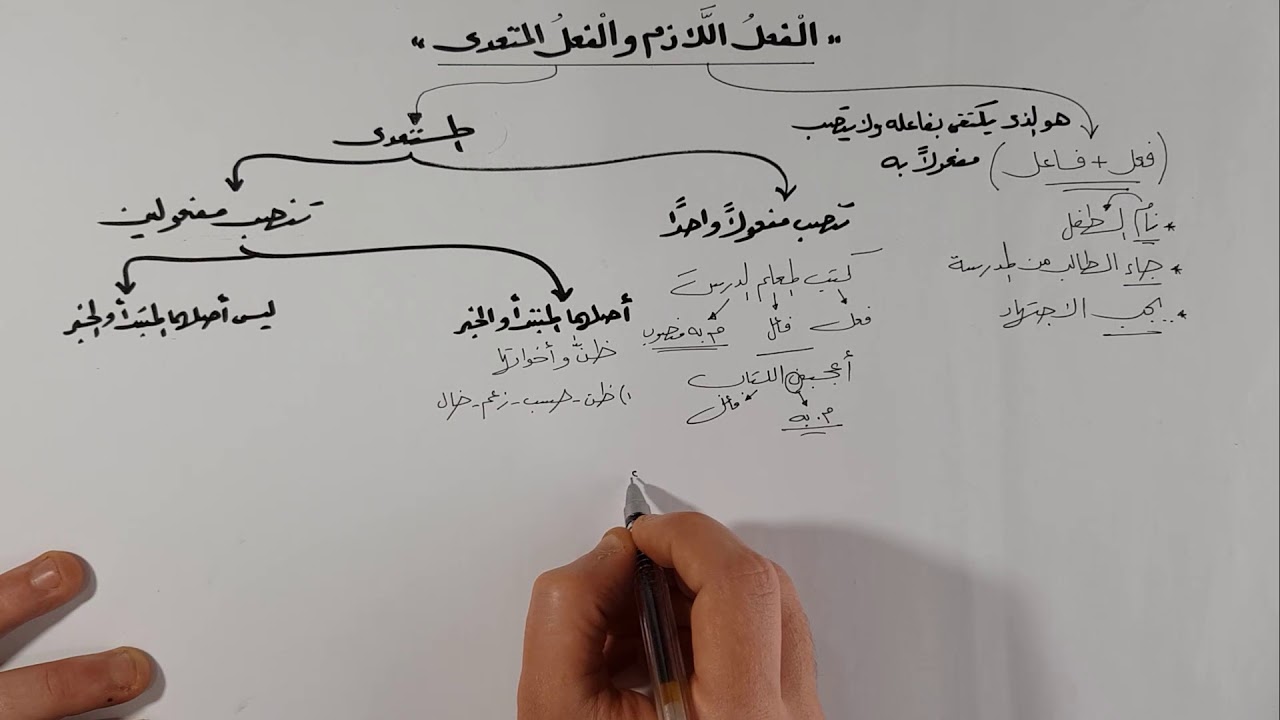 " الْفعلُ اللَّازم والْفعلُ المتعدى "
هو الذى يكتفى بفاعله ولا ينصب مفعولاً به
(فعل + فاعل)
* نامَ الطفل
* جاء الطالب من المدرسة
* يجب الاجتهاد
المتعدى
تنصب مفعولاً واحدًا
كتب المعلم الدرسَ
فعل فاعل م به منصوب
أعجبنى الكتاب
م. به فاعل
تنصب مفعولين
أصلهما المبتدأ والخبر
ظنّ وأخواتها
١) ظن - حسب - زعم - خال
ليس أصلهما المبتدأ والخبر